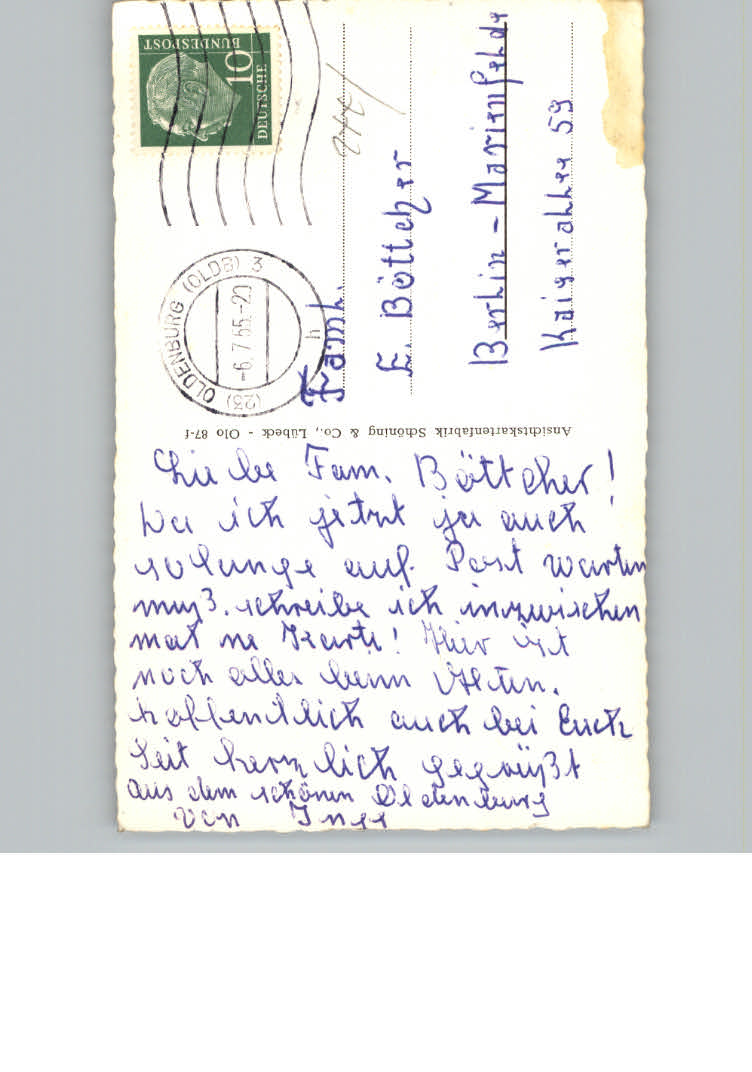 DEUTSCHE
BUNDESPOST
10
(23) OLDENBURG (OLDB) 3
-6.7.55-20
h
Faml.
E. Böttcher
Berlin - Marienfelde
Kaiserallee 59
Ansichtskartenfabrik Schöning & Co., Lübeck - Olo 87-f
Liebe Fam. Böttcher!
Da ich jetzt ja auch
solange auf Post warten
muß. schreibe ich inzwischen
mal ne Karte! Hier ist
noch alles beim Alten.
hoffendlich auch bei Euch
Seit herzlich gegrüßt
aus dem schönen Oldenburg
von Inge